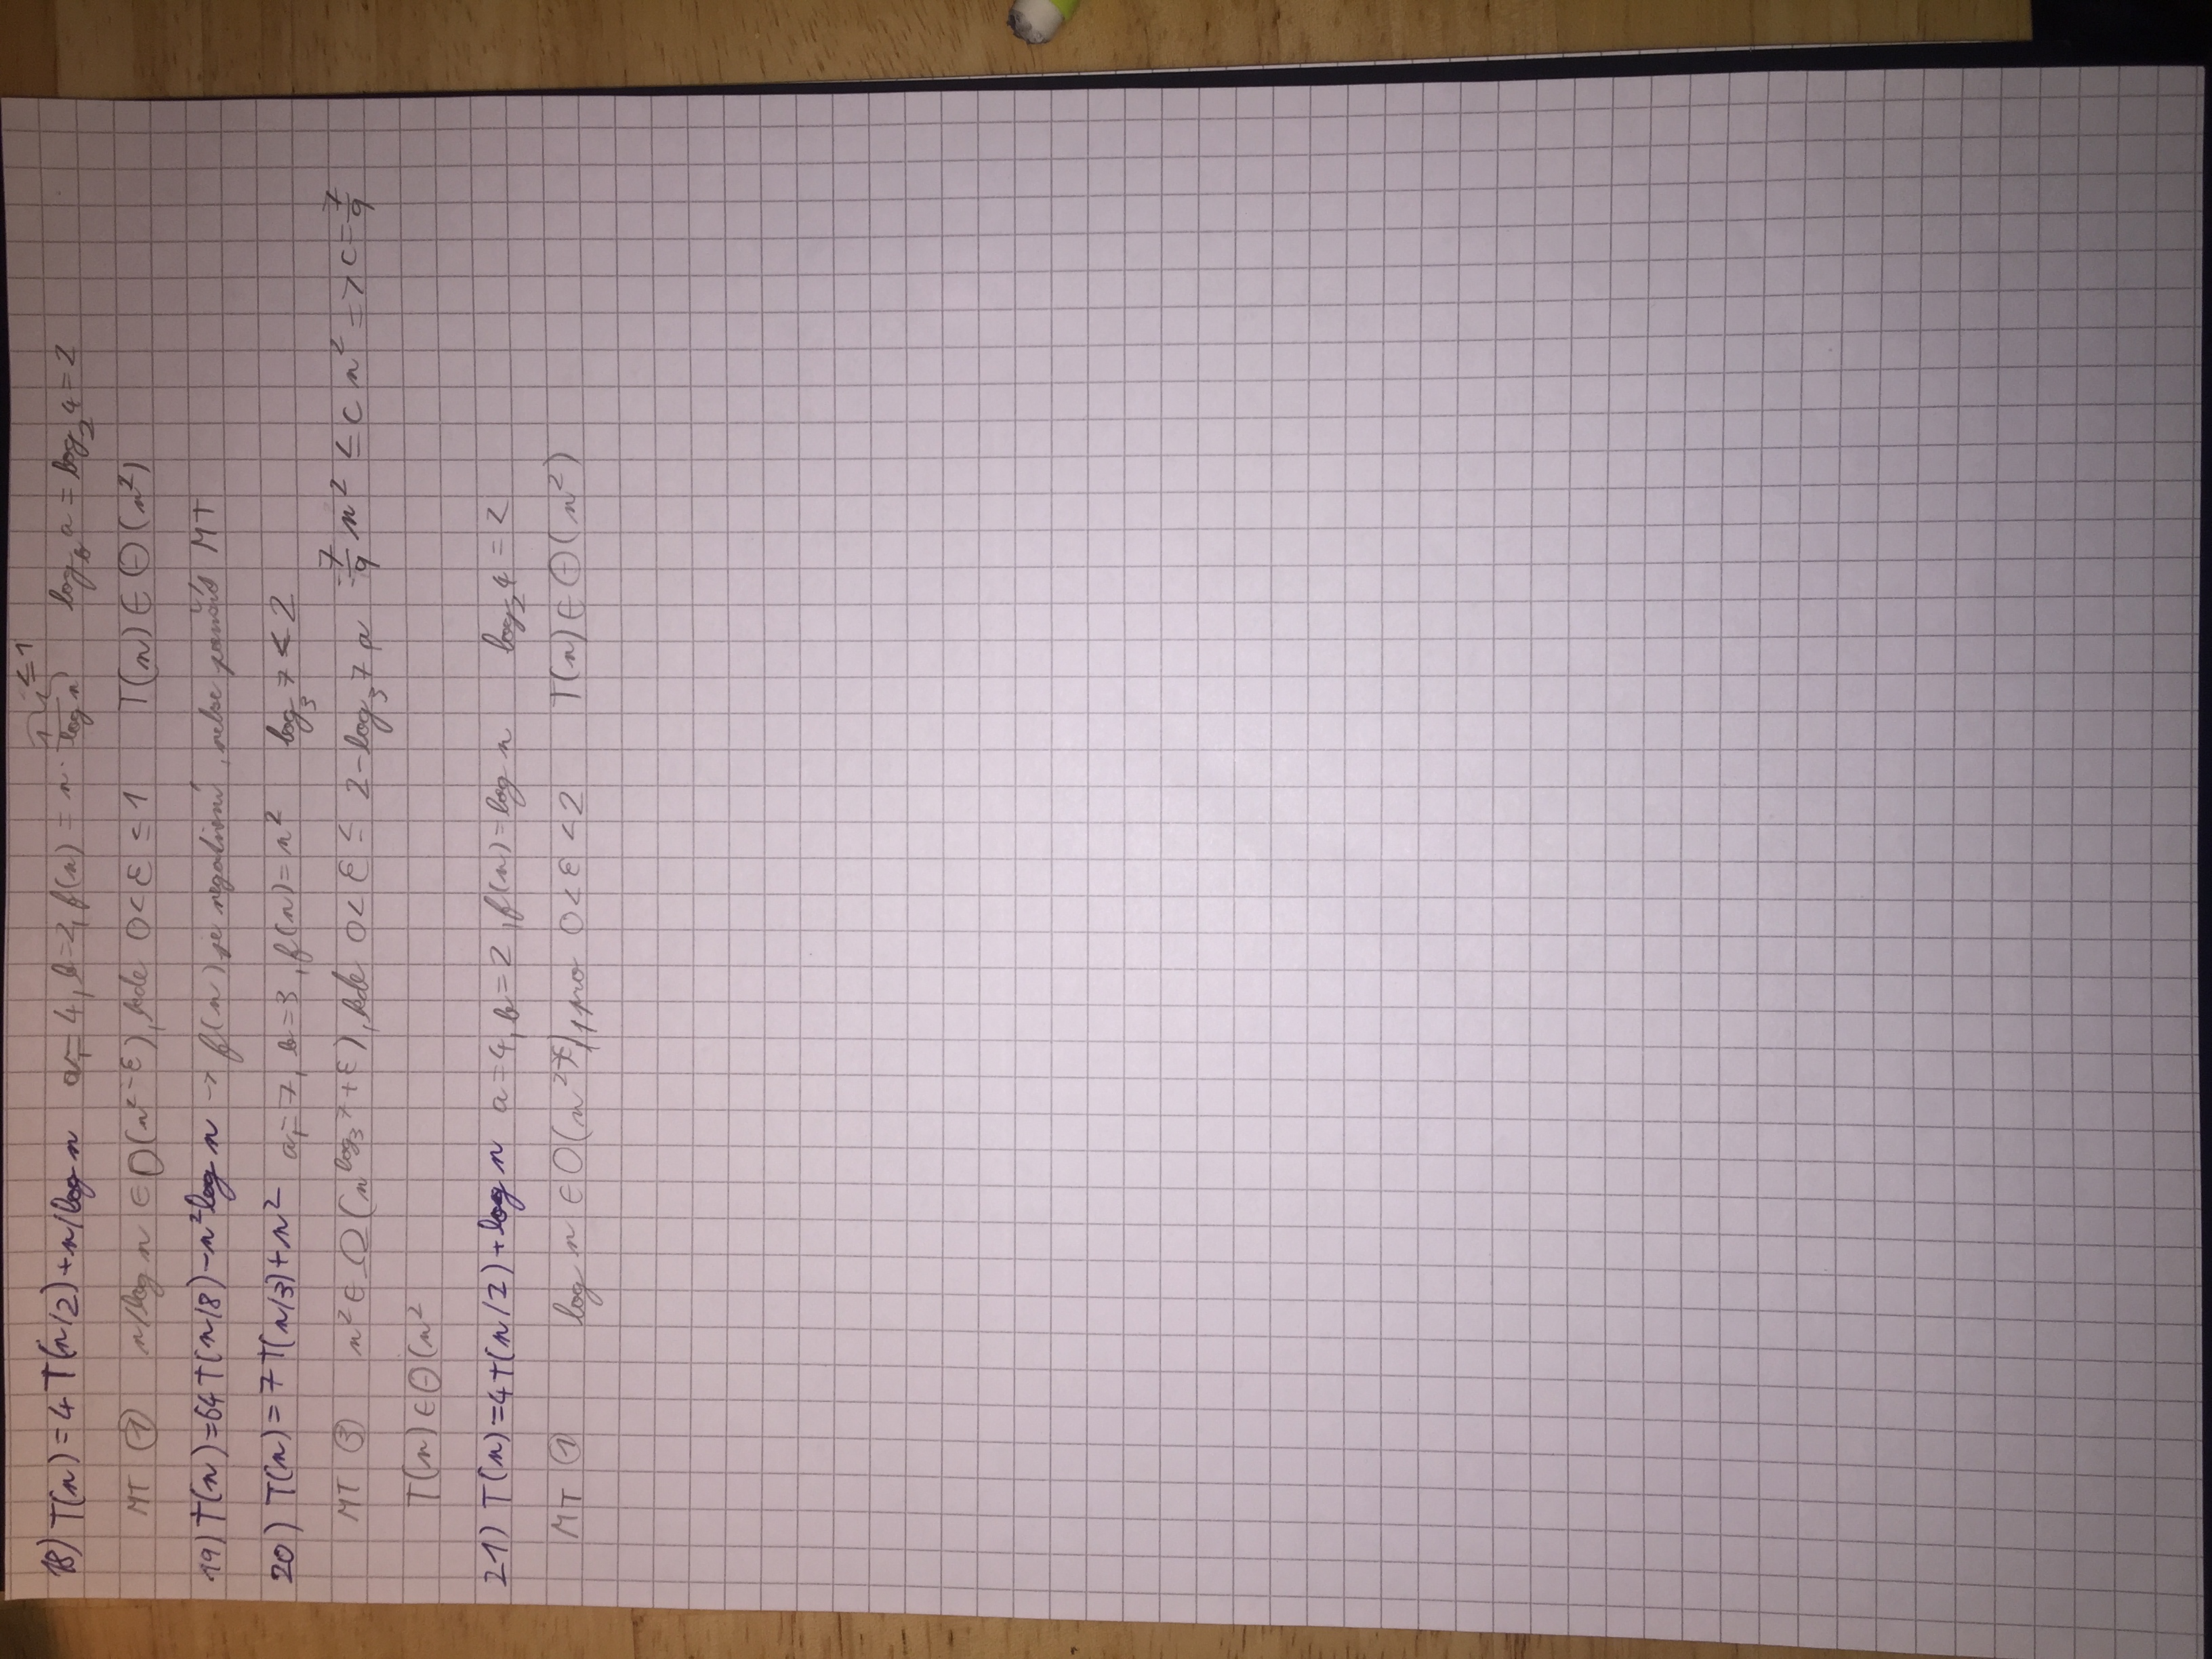 18) T(n)=4T(n/2)+n/log n a=4, b=2, f(n)=n·1/log n ≤1 log_b a = log_2 4 = 2
MT ① n/log n ∈ O(n^{2-ε}), kde 0<ε≤1 T(n)∈Θ(n²)
19) T(n)=64T(n/8)-n² log n → f(n) je negativní, nelze použít MT
20) T(n)=7T(n/3)+n² a=7, b=3, f(n)=n² log_3 7 < 2
MT ③ n² ∈ Ω(n^{log_3 7+ε}), kde 0<ε≤ 2-log_3 7 a 7/9 n² ≤ c n² => c=7/9
T(n)∈Θ(n²
21) T(n)=4T(n/2)+log n a=4, b=2, f(n)=log n log_2 4 = 2
MT ① log n ∈ O(n^{2-ε}), pro 0<ε<2 T(n)∈Θ(n²)